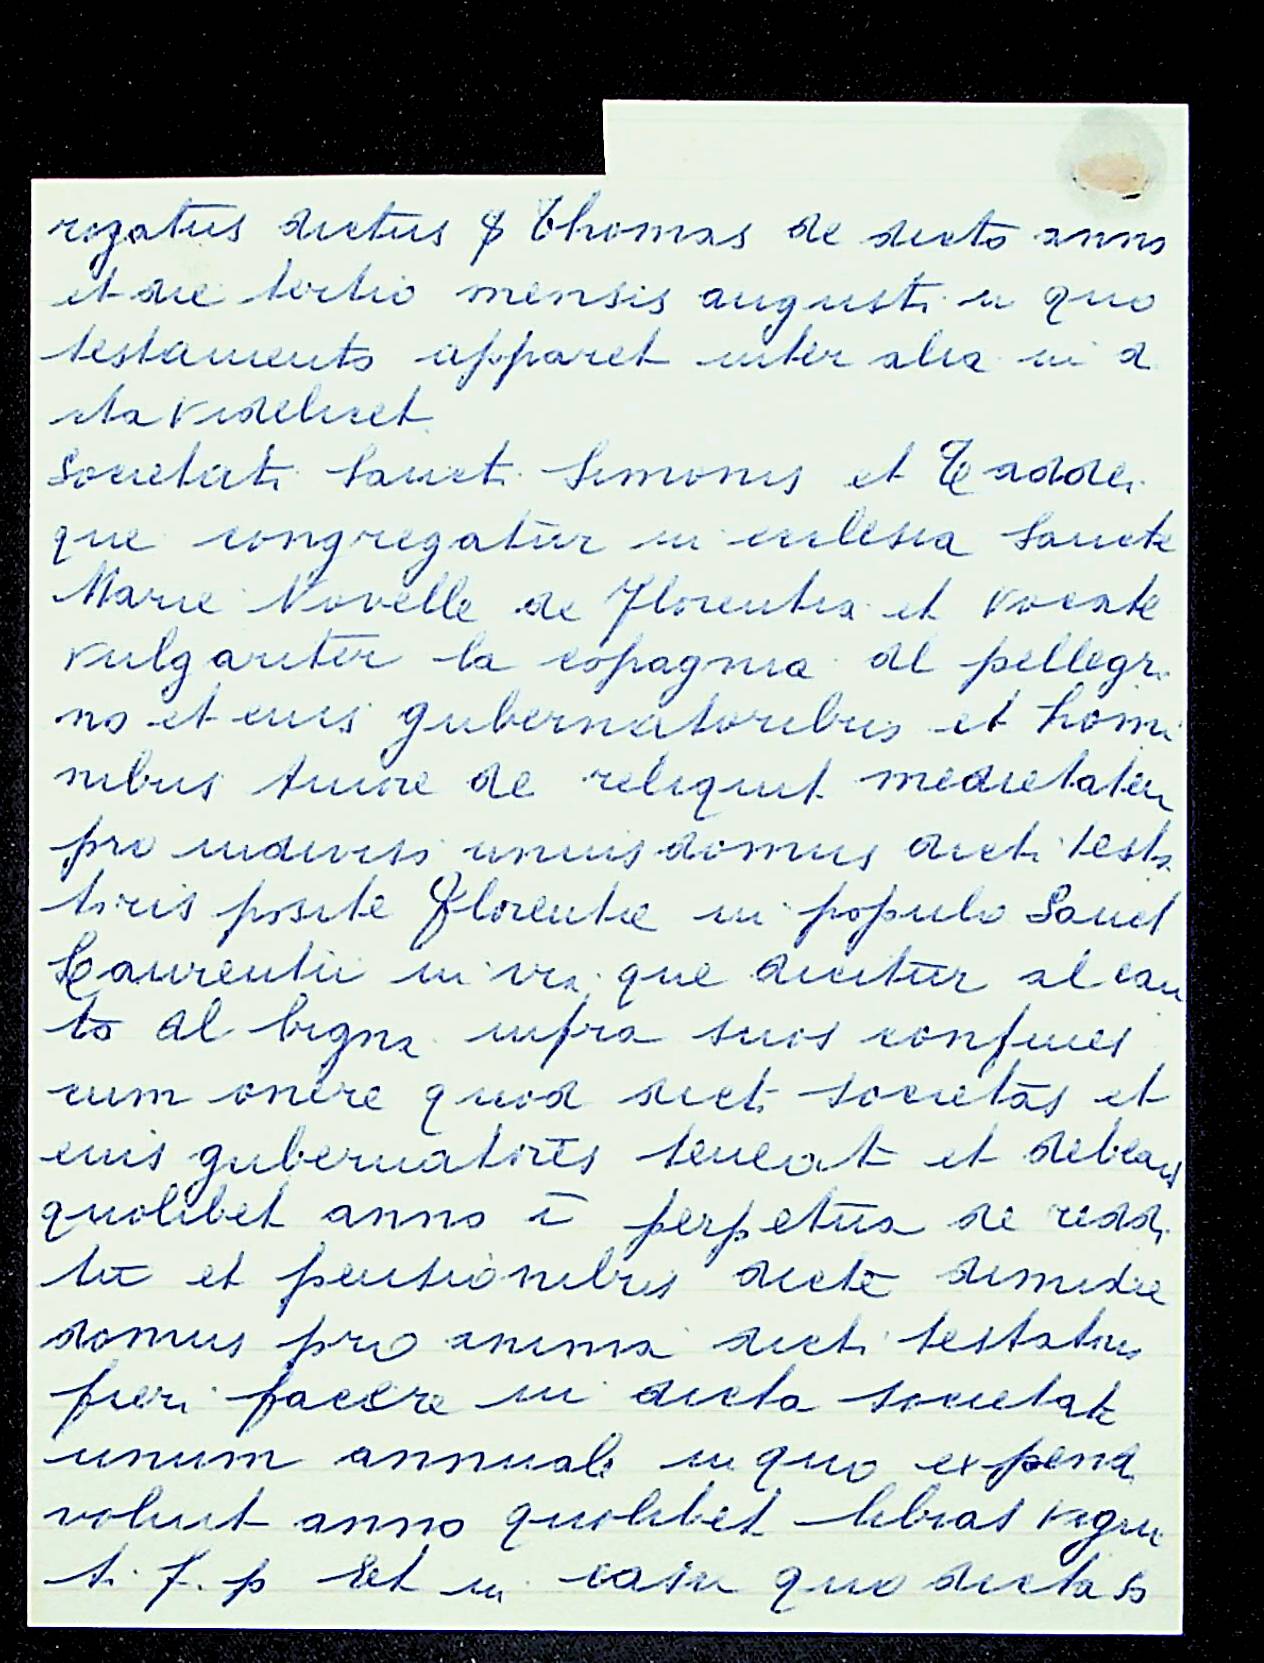 rogatus dictus S Thomas de dicto anno
et die tertio mensis augusti in quo
testamento apparet inter alia in d
ita videlicet
Societati Sancti Simonis et Taddei
que congregatur in eclesia Sancte
Marie Novelle de Florentia et vocate
vulgariter la copagnia del pellegri
no et euis gubernatoribus et homi
nibus iuire de reliquit medietatem
pro indiviso unius domus dicti testa
toris posite Florentie in populo Sancti
Laurentii in via que dicitur al can
to del bigna infra suos confines
cum onere quod dicti societas et
euis gubernatores teneat et debeat
quolibet anno ī perpetua de reddi
tū et pensionibus dicte dimidie
domus pro anima dicti testatoris
fieri facere in dicta societate
unum annuale in quo expend
voluit anno quolibet libras vigin
ti f. p Et in casu quo dicta so